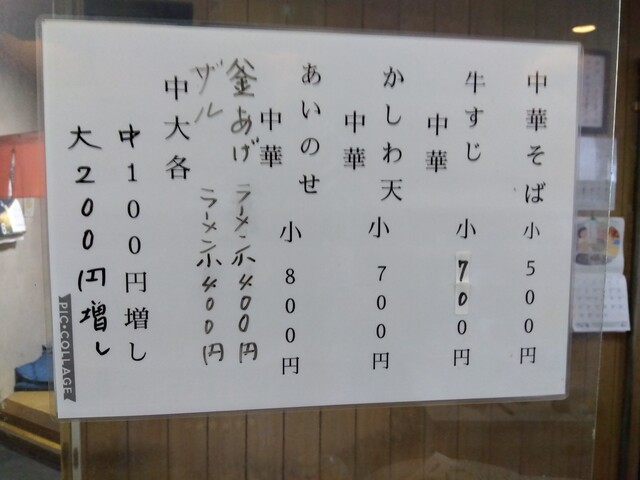 中華そば 小 500円
牛すじ
中華 小 700円
かしわ天
中華 小 700円
あいのせ
中華 小 800円
釜あげ ラーメン小400円
ザル ラーメン小400円
中大各
中100円増し
大200円増し
PIC•COLLAGE